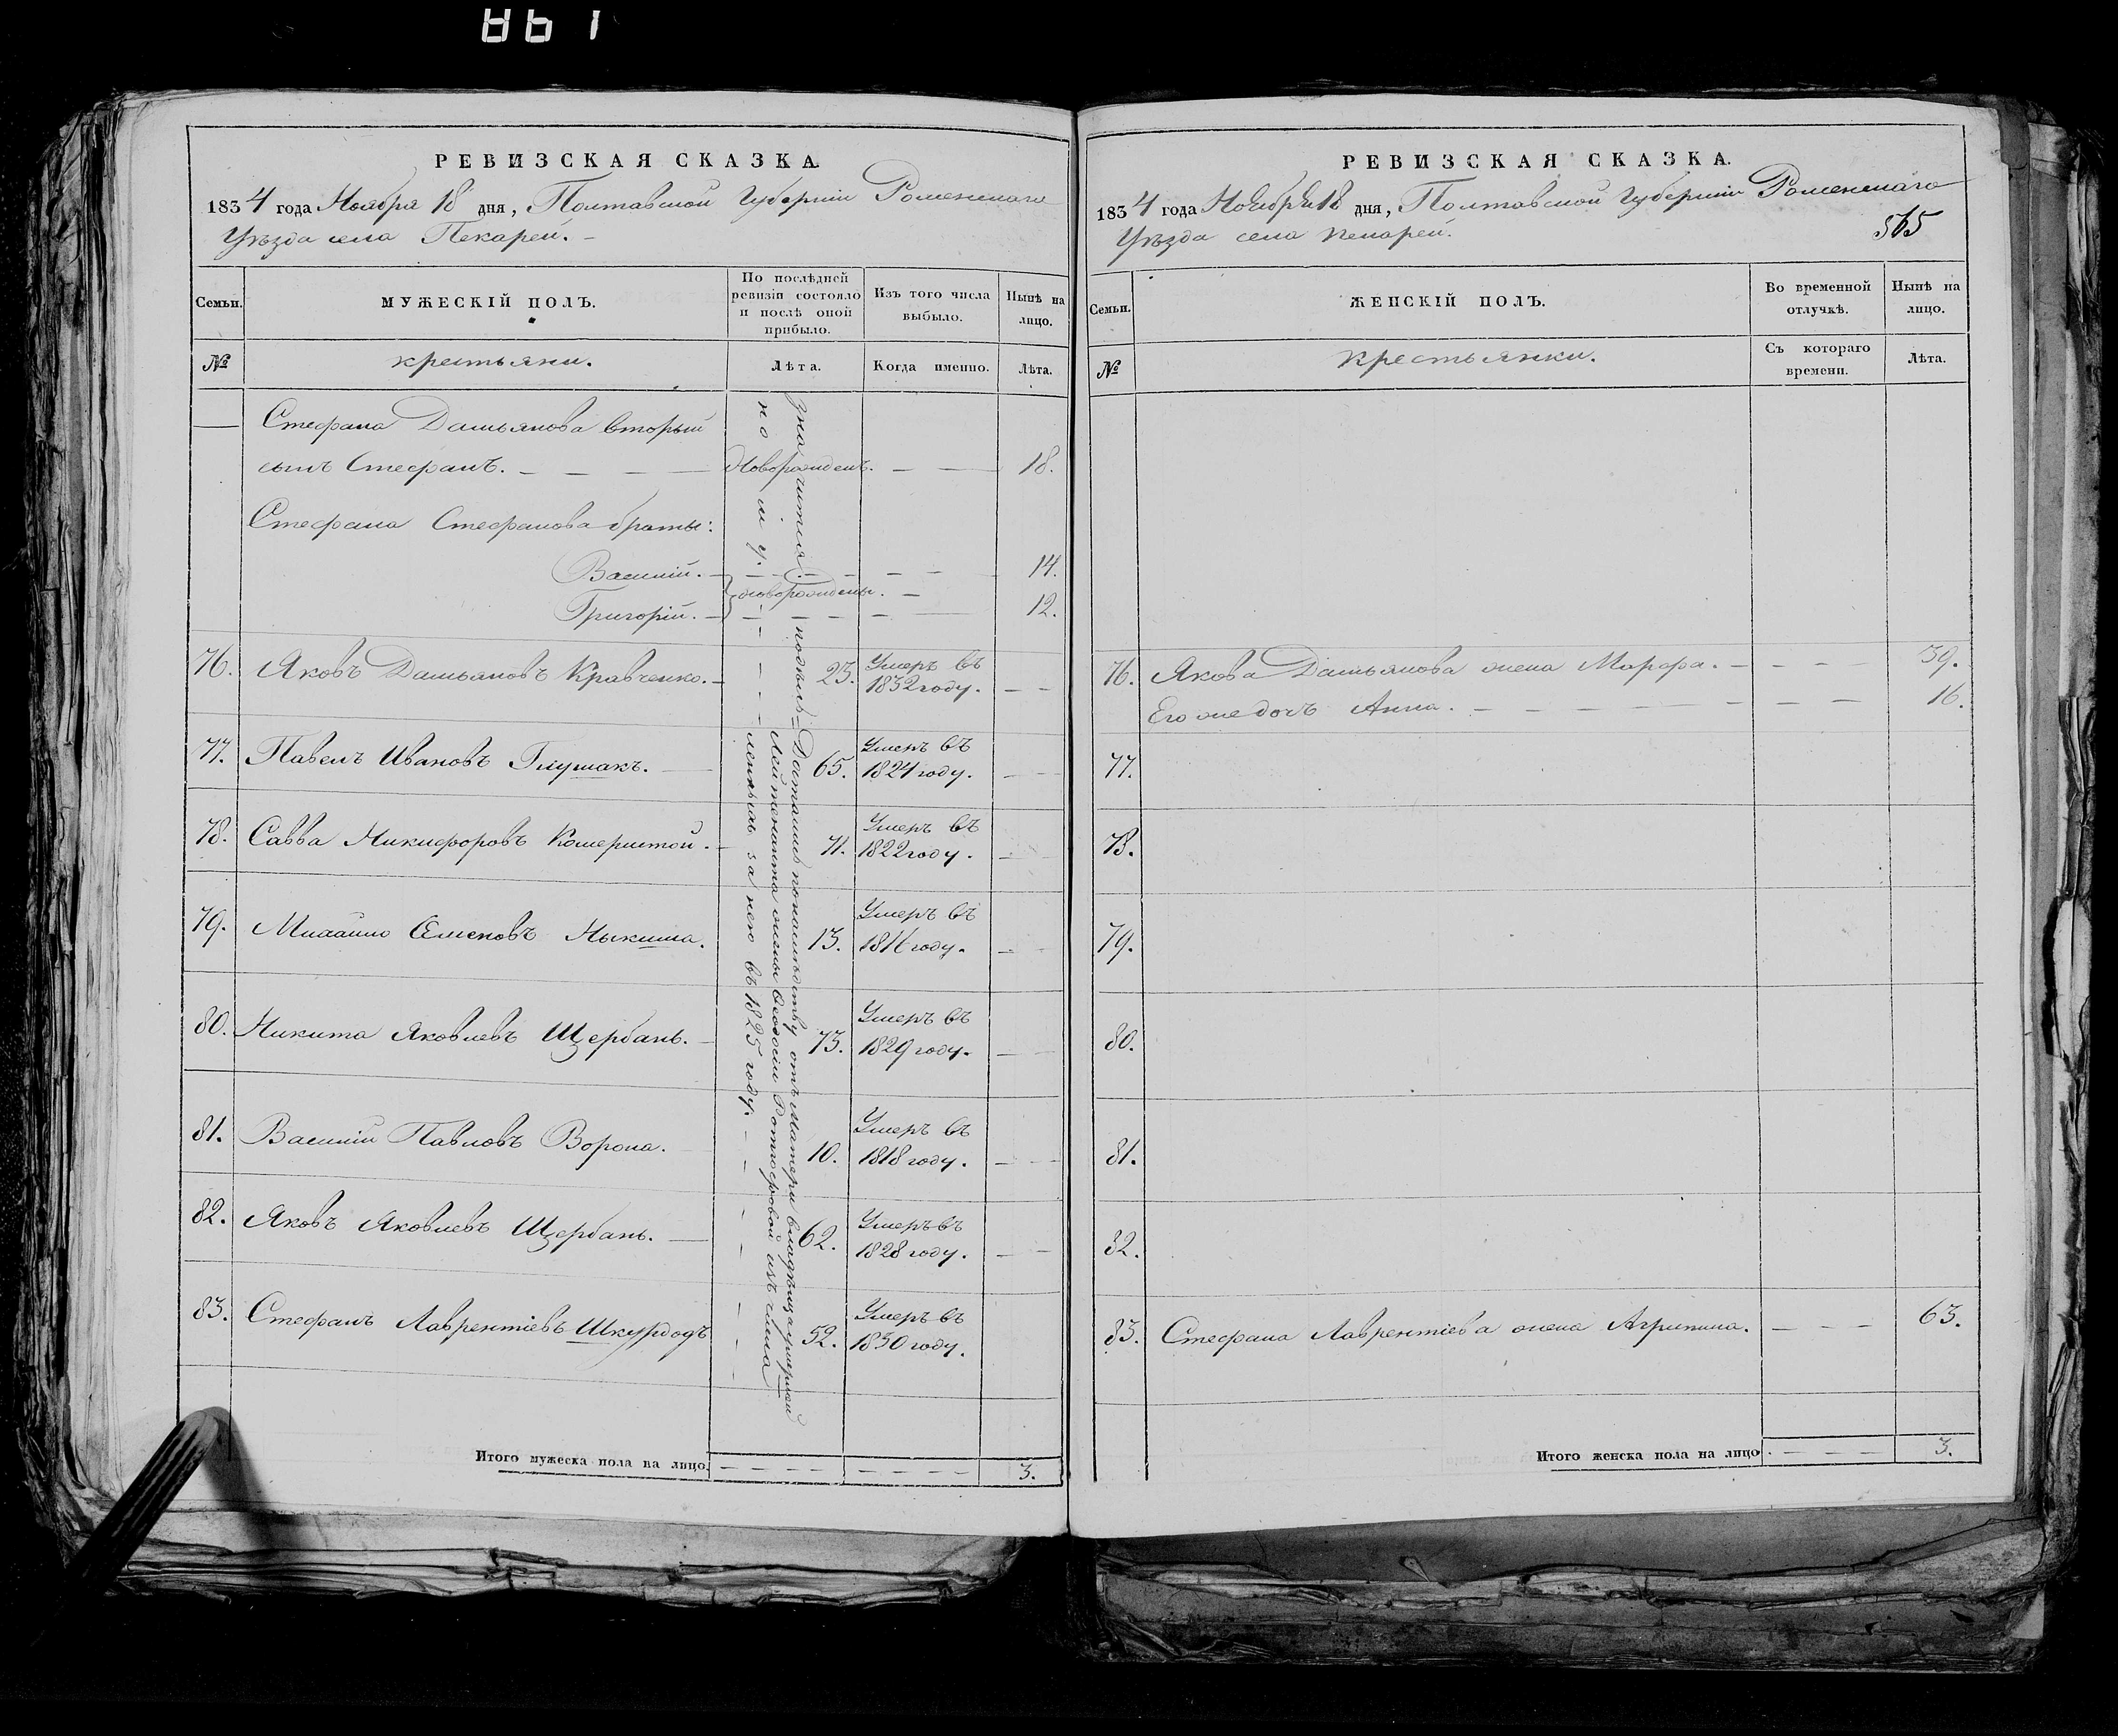 1961
РЕВИЗСКАЯ СКАЗКА.
1834 года Ноября 18 дня, Полтавской Губерніи Роменскаго
Уѣзда села Пекарей. –
Семьи.
МУЖЕСКІЙ ПОЛЪ.
По послѣдней ревизіи состояло и послѣ оной прибыло.
Изъ того числа выбыло.
Нынѣ на лицо.
№
крестьяни.
Лѣта.
Когда именно.
Лѣта.
Стефана Дамьянова вторый
сынъ Стефанъ. – – – – Новорожденъ. – – 18.
Стефана Стефанова браты:
Василій. – – – – – – 14.
новорождены. –
Григорій. – – – – – – 12.
76. Яковъ Дамьяновъ Кравченко. – 23. Умеръ въ 1832 году. – –
77. Павелъ Ивановъ Глушакъ. – 65. Умеръ въ 1824 году. – –
78. Савва Никифоровъ Комеристой. – 71. Умеръ въ 1822 году. – –
79. Михайло Семеновъ Ныкиша. 13. Умеръ въ 1816 году. – –
80. Никита Яковлевъ Щербань. – 73. Умеръ въ 1829 году. – –
81. Василій Павловъ Ворона. 10. Умеръ въ 1818 году. – –
82. Яковъ Яковлевъ Щербань. – 62. Умеръ въ 1828 году. – –
83. Стефанъ Лаврентіевъ Шкурдодъ 52. Умеръ въ 1830 году.
Достались по наслѣдству отъ матери владѣлца умершей
Лейтенанта жены Феодосіи
за нею въ 1825 году. –
Итого мужеска пола на лицо – – – – – – – – 3.
РЕВИЗСКАЯ СКАЗКА.
1834 года Ноября 18 дня, Полтавской Губерніи Роменскаго
Уѣзда села Пекарей.
565
Семьи.
ЖЕНСКІЙ ПОЛЪ.
Во временной отлучкѣ.
Нынѣ на лицо.
№
Крестьянки.
Съ котораго времени.
Лѣта.
76. Якова Дамьянова жена Марфа. – – – – 39.
Его же дочъ Анна. – – – – – – – 16.
77.
78.
79.
80.
81.
82.
83. Стефана Лаврентіева жена Агрипина. – – – 63.
Итого женска пола на лицо – – – – 3.